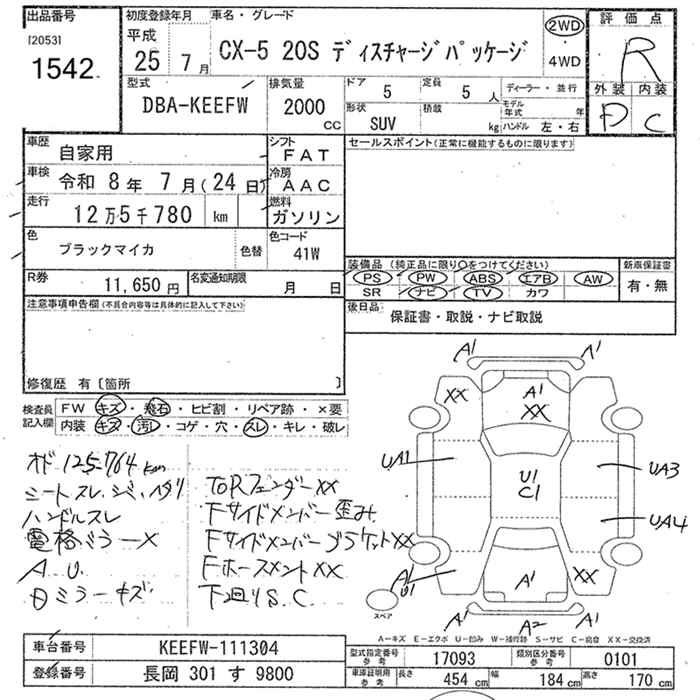 出品番号
[2053]
1542
初度登録年月
平成
25 7月
車名・グレード
CX-5 20S ディスチャージパッケージ
2WD
・
4WD
評価点
R
外装 内装
D C
型式
DBA-KEEFW
排気量
2000 CC
ドア 5
定員 5人
ディーラー・並行
形状 SUV
積載 kg
モデル年式 年
ハンドル 左・右
車歴 自家用
シフト FAT
車検 令和 8年 7月(24日)
冷房 AAC
走行 12万5千780 km
燃料 ガソリン
色 ブラックマイカ 色替
色コード 41W
R券 11,650円
名変通知期限 月 日
セールスポイント(正常に機能するものに限ります)
装備品 (純正品に限り○をつけてください)
PS PW ABS エアB AW
SR ナビ TV カワ
新車保証書
有・無
後日品
保証書・取説・ナビ取説
注意事項申告欄(不具合内容等は具体的に記入して下さい)
修復歴 有〔箇所 〕
検査員記入欄
FW キズ・飛石・ヒビ割・リペア跡・×要
内装 キズ・汚レ・コゲ・穴・スレ・キレ・破レ
オド 125-764 km
シートスレ、シミ、ヘタリ
ハンドルスレ
電格ミラーX
A U.
ミラーキズ
フェンダーXX
Fサイドメンバー歪み
FサイドメンバーブラケットXX
FホースメントXX
下廻りS.C
A1 A1
XX
A1
XX
UA1
U1
C1
UA3
UA4
A1
U1
A1
XX
スペア
A1 A2 A1
A-キズ E-エクボ U-凹み W-補修跡 S-サビ C-腐食 XX-交換済
車台番号 KEEFW-111304
登録番号 長岡 301 す 9800
型式指定番号 参考 17093
類別区分番号 参考 0101
車庫証明用 参考
長さ 454 cm
幅 184 cm
高さ 170 cm